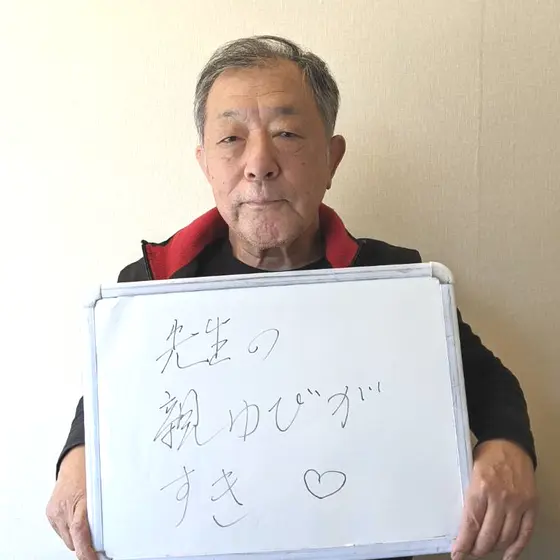 先生の
親ゆびが
すき♡